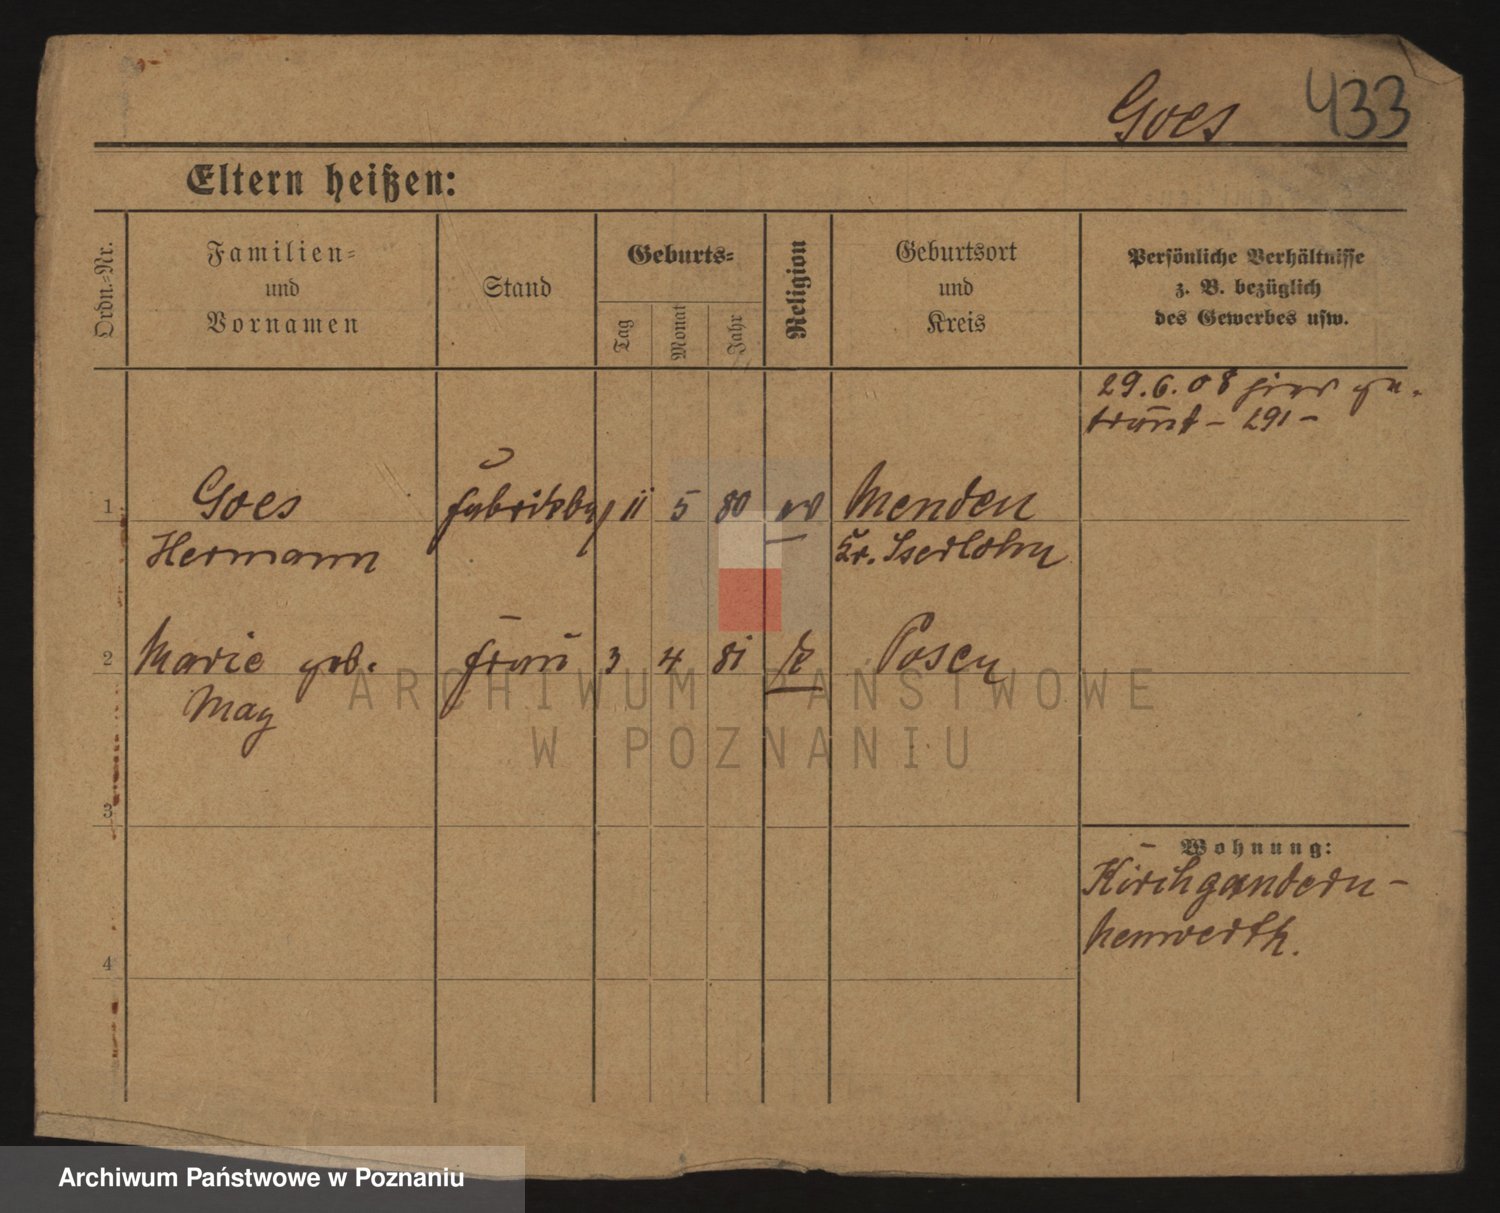 Goes 433
Eltern heißen:
Ordn.-Nr.
Familien-
und
Vornamen
Stand
Geburts-
Tag
Monat
Jahr
Religion
Geburtsort
und
Kreis
Persönliche Verhältnisse
z. B. bezüglich
des Gewerbes usw.
29.6.08 hier ge-
traut – 291 –
1 Goes Fabrikbes 11 5 80 ev Menden
Hermann Kr. Iserlohn
2 Marie geb. Frau 3 4 81 k Posen
May
ARCHIWUM PAŃSTWOWE
W POZNANIU
3
Wohnung:
Kirchgandern-
4
Archiwum Państwowe w Poznaniu